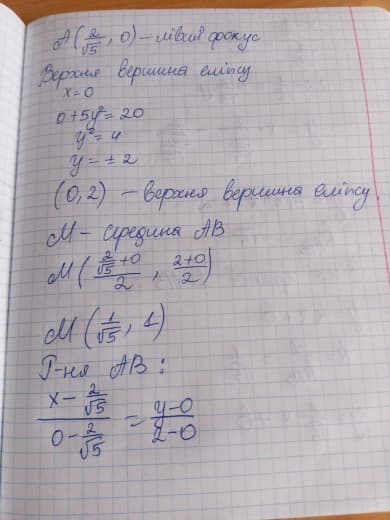 A(2/√5, 0) – лівий фокус
Верхня вершина еліпсу
x=0
0+5y²=20
y²=4
y=±2
(0,2) – верхня вершина еліпсу.
M – середина AB
M((2/√5+0)/2, (2+0)/2)
M(1/√5, 1)
Р-ня AB:
(x-2/√5)/(0-2/√5) = (y-0)/(2-0)